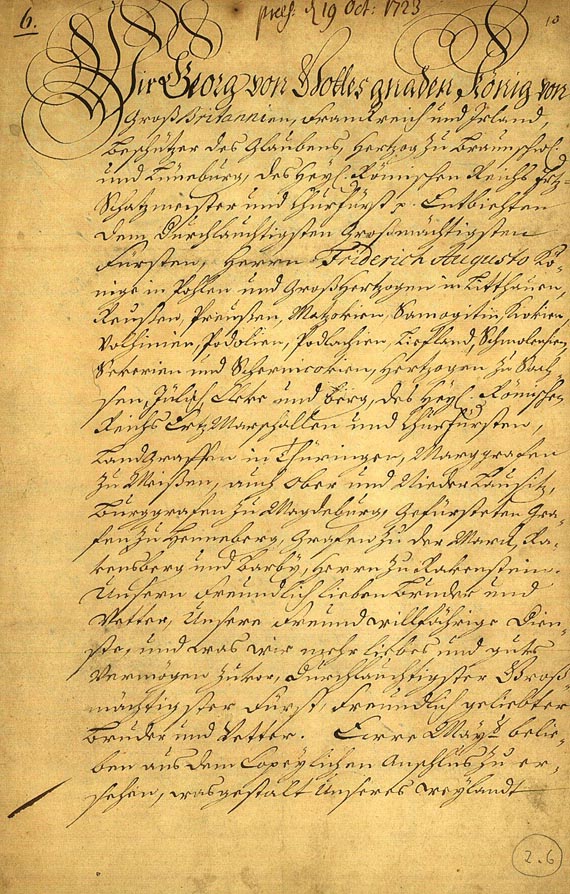 6.
præs. d 19 Oct: 1723
10
Wir Georg von Gottes gnaden, König von
Groß Britannien, Franckreich und Irland,
Beschützer des Glaubens, Hertzog zu Braunschw.
und Lüneburg, des Heyl. Römischen Reichs Ertz-
Schatzmeister und Churfürst p. Entbiethen
dem Durchlauchtigsten Großmächtigsten
Fürsten, Herrn Friderich Augusto Kö-
nige in Pohlen und Großhertzogen in Litthauen,
Reußen, Preußen, Mazovien, Samogitin, Kyovien
Volhinien, Podolien, Podlachien, Liefland, Schmolensko,
Severien und Schernicovien, Hertzogen zu Sach-
sen, Jülich Cleve und Berg, des Heyl. Römischen
Reichs Ertz Marschallen und Churfürsten,
Landgraffen in Thüringen, Marggrafen
zu Meißen, auch Ober und Nieder Lausitz,
Burggrafen zu Magdeburg, Gefürsteten Gra-
fen zu Henneberg, Grafen zu der Marck, Ra-
vensberg und Barby, Herrn zu Ravenstein.
Unsern Freundlich lieben Bruder und
Vetter, Unsere Freundwillfährige Dien-
ste, und was wir mehr liebes und guts
Vermögen zuvor, Durchlauchtigster Groß-
mächtigster Fürst, Freundlich geliebter
Bruder und Vetter. Ewre Mayt. belie-
ben aus dem Copeylichen Anschluß zu er-
sehen, wasgestalt Unseres weylandt
2.6